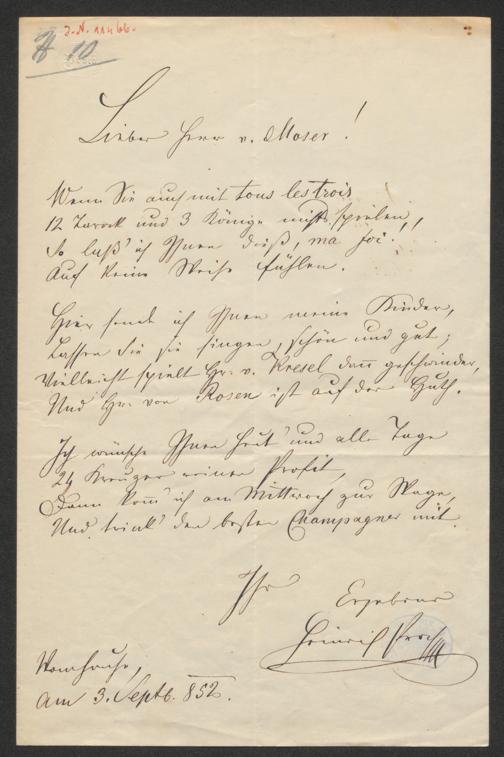 J.N. 11466.
10
Lieber Herr v. Moser!
Wenn Sie auch mit tous les trois
12 Tarock und 3 Könige nichts spielen,
So laß' ich Ihnen dieß, ma foi!
Auf keine Weise fühlen.
Hier sende ich Ihnen meine Kinder,
Lassen Sie sie singen, schön und gut;
Vielleicht spielt Hr. v. Kresel dann geschwinder,
Und Hr. von Rosen ist auf der Huth.
Ich wünsche Ihnen heut' und alle Tage
24 Kreuzer reinen Profit,
Dann komm' ich am Mittwoch zur
Und trink' den besten Champagner mit.
Ihr
Ergebener
Heinrich Proch
am 3. Septb. 852.